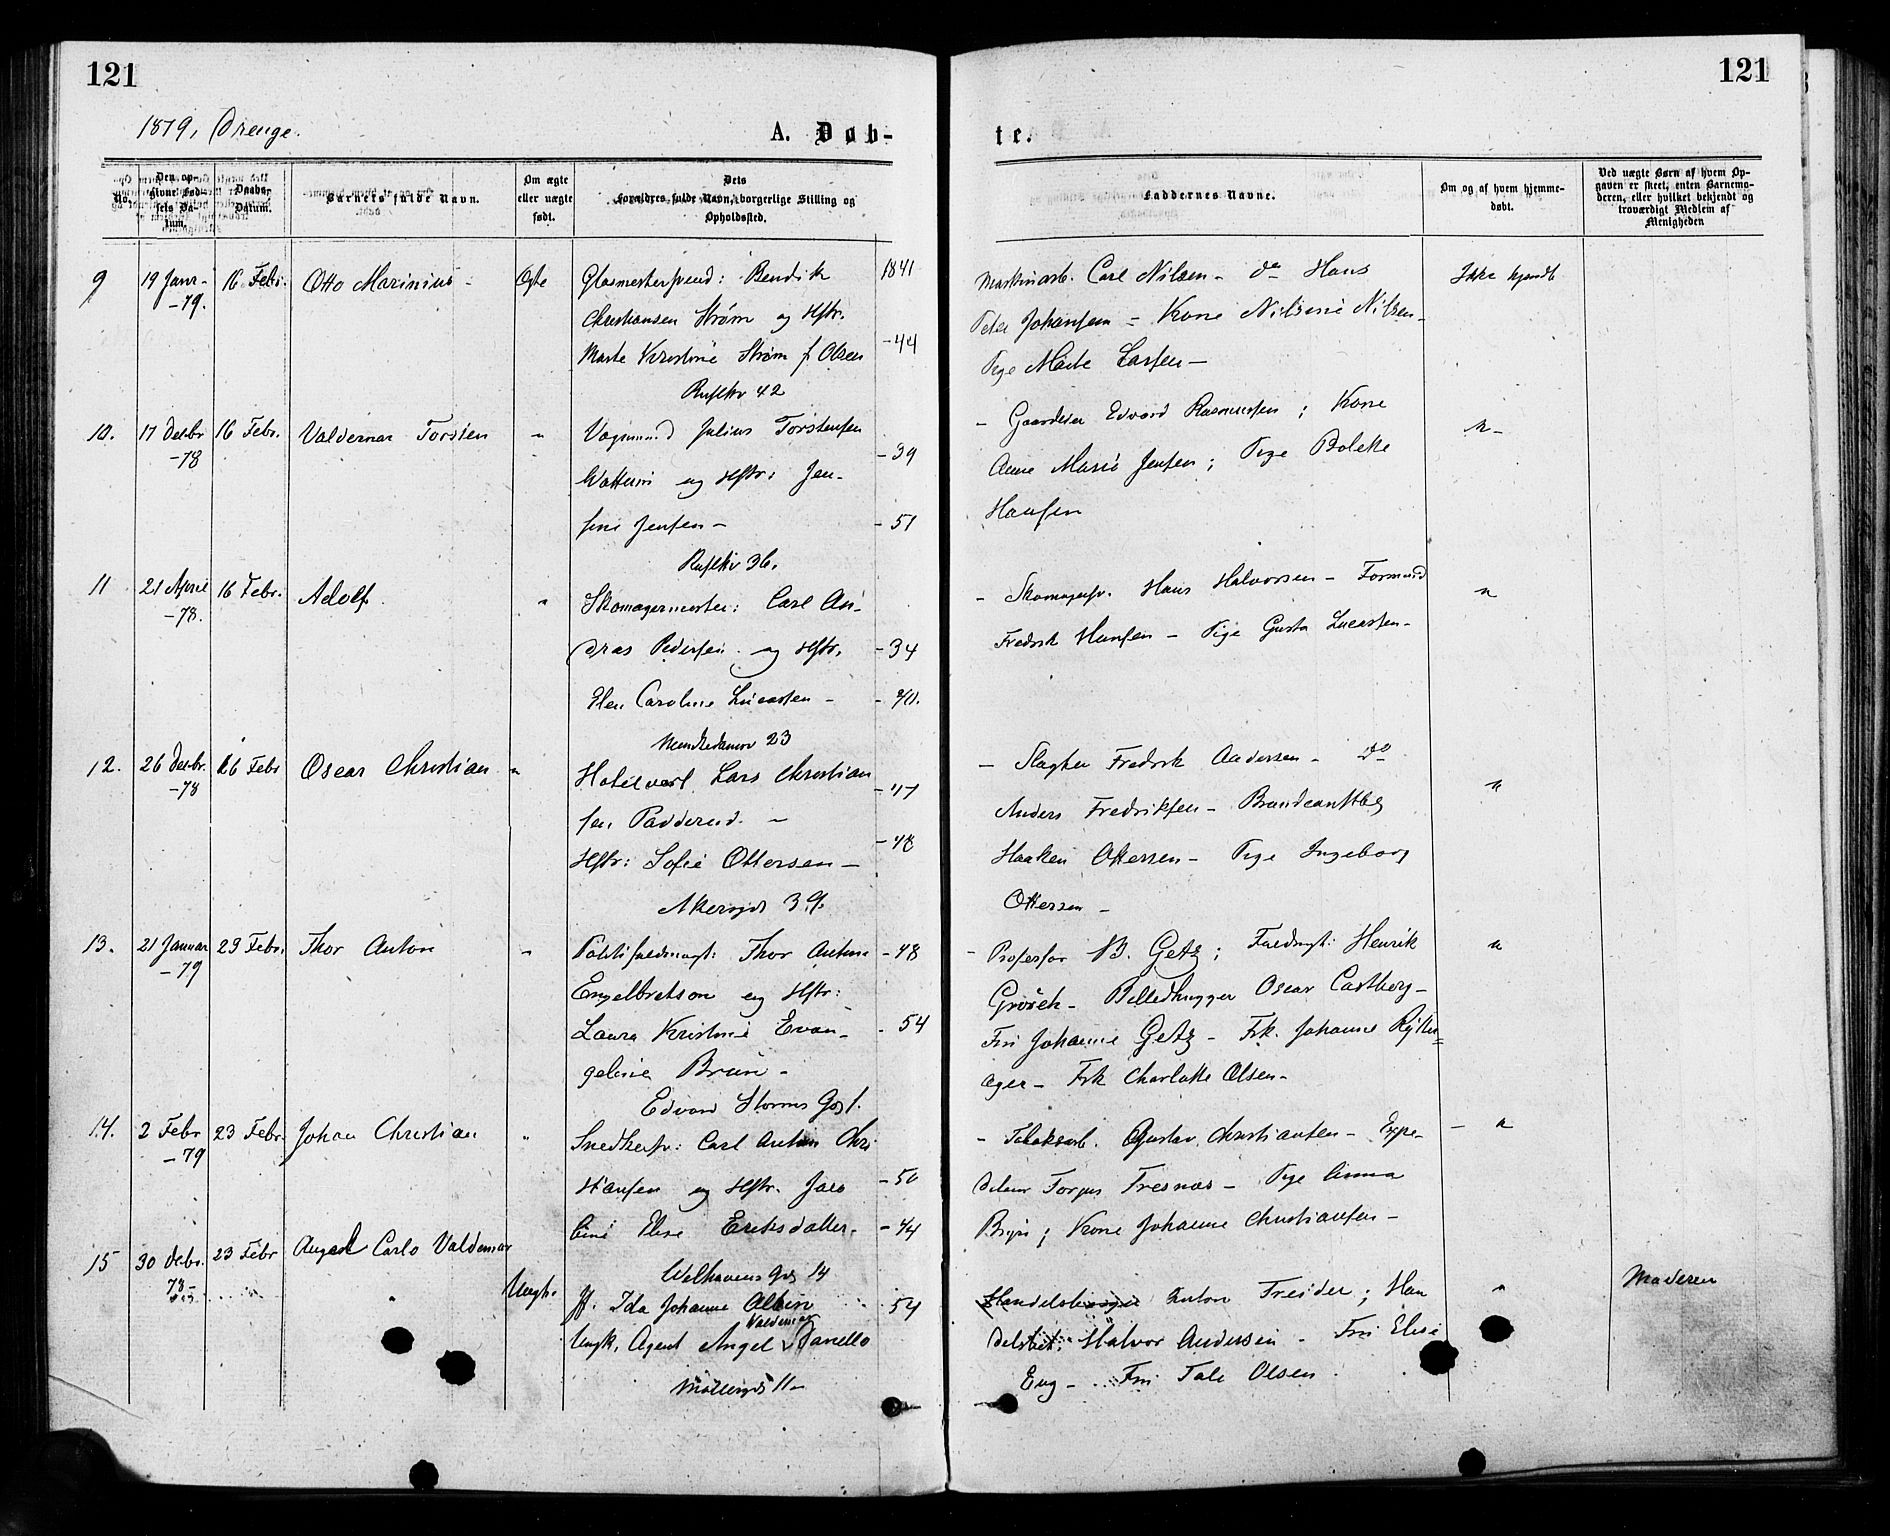 121
121
1879, Drenge.
A. Døb-
te.
No.
Den op-
givne Fød-
sels Da-
tum.
Daabs-
Datum.
Barnets fulde Navn.
Om ægte
eller uægte
født.
Dets
Forældres fulde Navn, borgerlige Stilling og
Opholdssted.
Faddernes Navne.
Om og af hvem hjemme-
døbt.
Ved uægte Børn af hvem Op-
gaven er skeet, enten Barnemo-
deren, eller hvilket bekjendt og
troværdigt Medlem af
Menigheden
9
19 Janr-
-79.
16 Febr.
Otto Marinius -
Ægte
Glasmestersvend: Bendik
Christiansen Strøm og Hstr.
Marte Kristine Strøm f. Olsen
Ruflkv 42
1841
-44
Maskinarb. Carl Nilsen - do Hans
Peter Johansen - Kone Nilsine Nilsen -
Pige Marte Larsen -
Ikke hjemdt
10.
17 Decbr
-78
16 Febr.
Valdemar Torsten
"
Vognmand Julius Torstensen
og Hstr. Jen-
sine Jensen -
Ruflkv 36.
-39
-51
- Gaardeier Edvard Rasmussen; Kone
Anne Marie Jensen; Pige Bolette
Hansen
"-
11
21 April
-78.
16 Febr.
Adolf.
"
Skomagermester: Carl An-
dras Pedersen og Hstr.
Elen Caroline Lucassen -
23
-34
-40.
- Skomagersv. Hans Halvorsen - Formand
Fredrik Hansen - Pige Gusta Lucassen -
"
12.
26 Decbr.
-78
16 Febr
Oscar Christian
"
Hotelvært Lars Christian
sen Padderud. -
Hstr: Sofie Ottersen -
Akersgd
-47
-48
- Slagter Fredrik Andersen - Do
Anders Fredriksen -
Haaken Ottersen - Pige Ingeborg
Ottersen -
"
13.
21 Januar
-79
23 Febr.
Thor Anton
"
Politifuldmægt: Thor Anton
Engelbretson og Hstr:
Laura Kristine Evan-
geline Brun -
Edvard Storms Gd 1.
-48
-54
- Professor B. Getz; Fuldmgt: Henrik
Grosch - Billedhugger Oscar Castberg -
Fru Johanne Getz - Frk. Johanne Rytter-
ager - Frk Charlotte Olsen -
"
14.
2 Febr
-79
23 Febr.
Johan Christian
"
Snedkersv: Carl Anton Chri
Hansen og Hstr. Jaco
bine Elise Eriksdatter.
Welhavens Gd 14
-50
-44
- Tobaksarb. Gustav Christiansen - Expe-
diteur Torjus Tresnæs - Pige Anna
Kone Johanne Christiansen -
- "
15
30 Debr.
78-
23 Febr
Angel Carlo Valdemar
"
Uægte.
Pg. Ida Johanne Albin
Valdemar
Ungk. Agent Angel Danello
Møllergd 11 -
54
Anton Treider; Han
delsbet: Halvor Andersen - Fru Elise
Eng - Fru Tale Olsen
"
Moderen